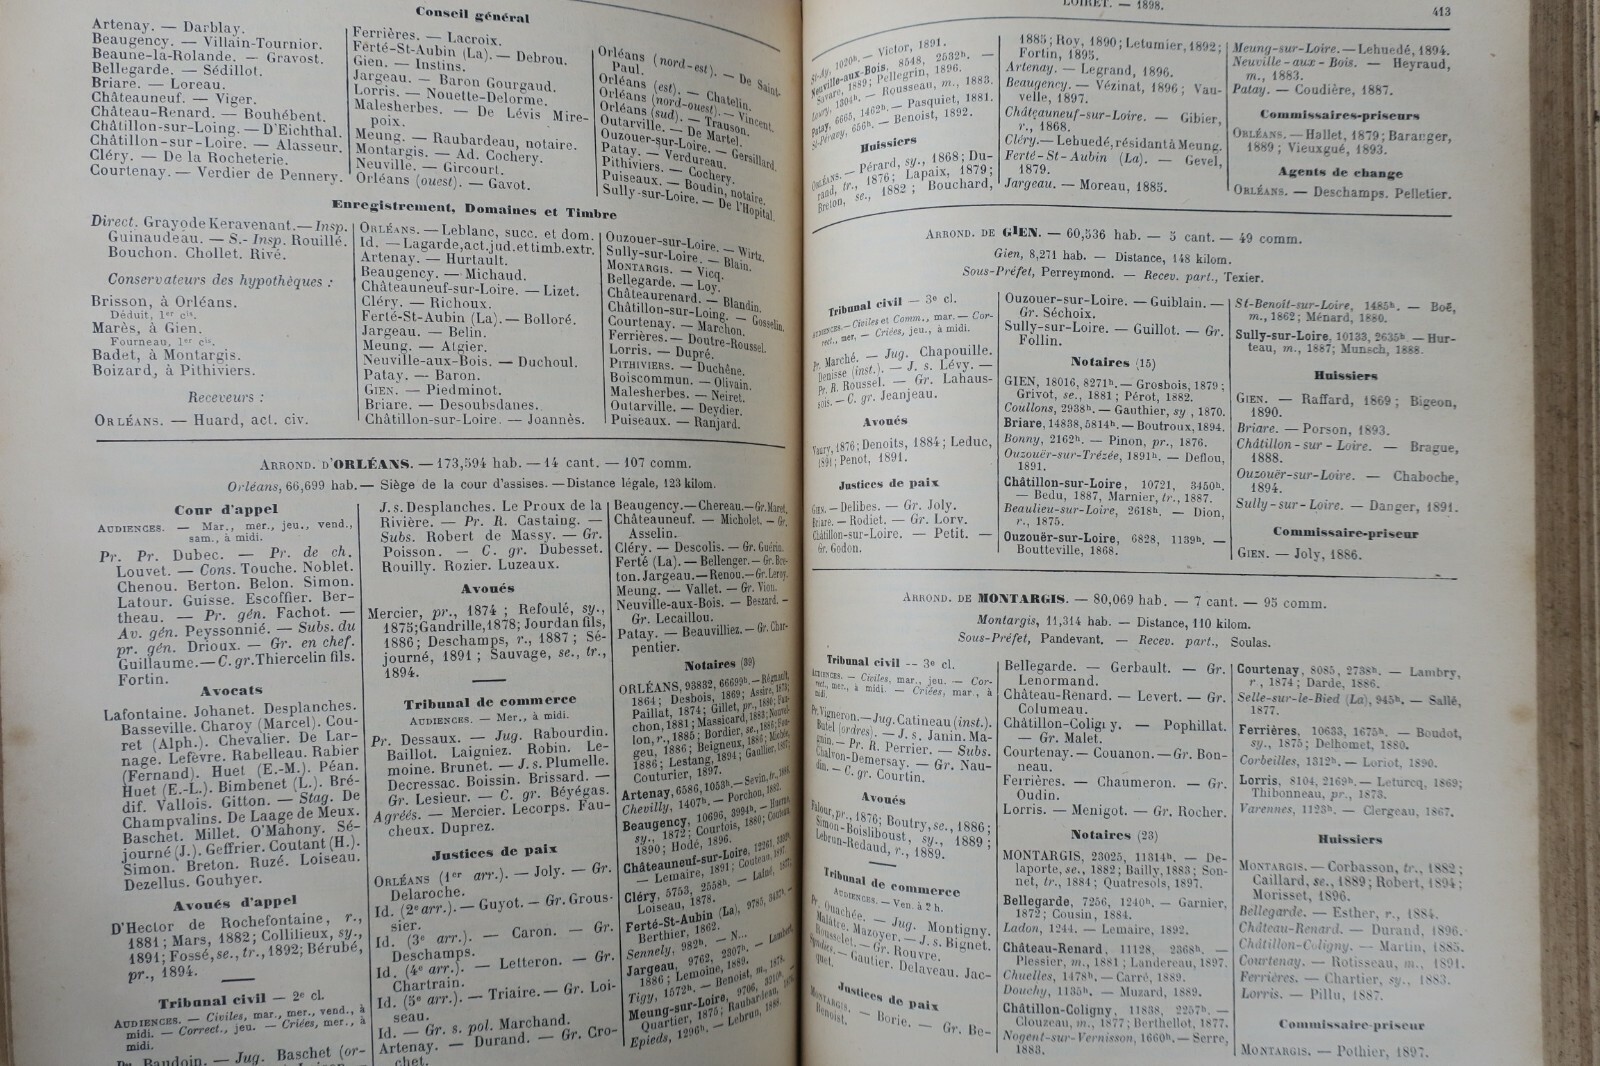 Conseil général
Artenay. — Darblay.
Beaugency. — Villain-Tournier.
Beaune-la-Rolande. — Gravost.
Bellegarde. — Sédillot.
Briare. — Loreau.
Châteauneuf. — Viger.
Château-Renard. — Bouhébent.
Châtillon-sur-Loing. — D'Eichthal.
Châtillon-sur-Loire. — Alasseur.
Cléry. — De la Rocheterie.
Courtenay. — Verdier de Pennery.
Ferrières. — Lacroix.
Ferté-St-Aubin (La). — Debrou.
Gien. — Instins.
Jargeau. — Baron Gourgaud.
Lorris. — Nouette-Delorme.
Malesherbes. — De Lévis Mire-
poix.
Meung. — Raubardeau, notaire.
Montargis. — Ad. Cochery.
Neuville. — Gircourt.
Orléans (ouest). — Gavot.
Orléans (nord-est). — De Saint-
Paul.
Orléans (est). — Chatelin.
Orléans (nord-ouest). — Vincent.
Orléans (sud). — Trauson.
Outarville. — De Martel.
Ouzouer-sur-Loire. — Gersillard.
Patay. — Verdureau.
Pithiviers. — Cochery.
Puiseaux. — Boudin, notaire.
Sully-sur-Loire. — De l'Hopital.
Enregistrement, Domaines et Timbre
Direct. Grayode Keravenant. — Insp.
Guinaudeau. — S.- Insp. Rouillé.
Bouchon. Chollet. Rivé.
Conservateurs des hypothèques :
Brisson, à Orléans.
Déduit, 1er cis.
Marès, à Gien.
Fourneau, 1er cis.
Badet, à Montargis.
Boizard, à Pithiviers.
Receveurs :
ORLÉANS. — Huard, act. civ.
ORLÉANS. — Leblanc, succ. et dom.
Id. — Lagarde, act. jud. et timb. extr.
Artenay. — Hurtault.
Beaugency. — Michaud.
Châteauneuf-sur-Loire. — Lizet.
Cléry. — Richoux.
Ferté-St-Aubin (La). — Bolloré.
Jargeau. — Belin.
Meung. — Algier.
Neuville-aux-Bois. — Duchoul.
Patay. — Baron.
GIEN. — Piedminot.
Briare. — Desoubsdanes.
Châtillon-sur-Loire. — Joannès.
Ouzouer-sur-Loire. — Wirtz.
Sully-sur-Loire. — Blain.
MONTARGIS. — Vicq.
Bellegarde. — Loy.
Châteaurenard. — Blandin.
Châtillon-sur-Loing. — Gosselin.
Courtenay. — Marchon.
Ferrières. — Doutre-Roussel.
Lorris. — Dupré.
PITHIVIERS. — Duchêne.
Boiscommun. — Olivain.
Malesherbes. — Neiret.
Outarville. — Deydier.
Puiseaux. — Ranjard.
ARROND. D'ORLÉANS. — 173,594 hab. — 14 cant. — 107 comm.
Orléans, 66,699 hab. — Siège de la cour d'assises. — Distance légale, 123 kilom.
Cour d'appel
AUDIENCES. — Mar., mer., jeu., vend.,
sam., à midi.
Pr. Pr. Dubec. — Pr. de ch.
Louvet. — Cons. Touche. Noblet.
Chenou. Berton. Belon. Simon.
Latour. Guisse. Escoffier. Ber-
theau. — Pr. gén. Fachot. —
Av. gén. Peyssonnié. — Subs. du
pr. gén. Drioux. — Gr. en chef.
Guillaume. — C. gr. Thiercelin fils.
Fortin.
Avocats
Lafontaine. Johanet. Desplanches.
Basseville. Charoy (Marcel). Cou-
ret (Alph.). Chevalier. De Lar-
nage. Lefèvre. Rabelleau. Rabier
(Fernand). Huet (E.-M.). Péan.
Huet (E.-L.). Bimbenet (L.). Bré-
dif. Vallois. Gitton. — Stag. De
Champvalins. De Laage de Meux.
Baschet. Millet. O'Mahony. Sé-
journé (J.). Geffrier. Coutant (H.).
Simon. Breton. Ruzé. Loiseau.
Dezellus. Gouhyer.
Avoués d'appel
D'Hector de Rochefontaine, r.,
1881; Mars, 1882; Collilieux, sy.,
1891; Fossé, se., tr., 1892; Bérubé,
pr., 1894.
Tribunal civil — 2e cl.
AUDIENCES. — Civiles, mar., mer., vend., à
midi. — Correct., jeu. — Criées, mer., à
midi.
Baudoin. — Jug. Baschet (or-
J. s. Desplanches. Le Proux de la
Rivière. — Pr. R. Castaing. —
Subs. Robert de Massy. — Gr.
Poisson. — C. gr. Dubesset.
Rouilly. Rozier. Luzeaux.
Avoués
Mercier, pr., 1874; Refoulé, sy.,
1875; Gandrille, 1878; Jourdan fils,
1886; Deschamps, r., 1887; Sé-
journé, 1891; Sauvage, se., tr.,
1894.
Tribunal de commerce
AUDIENCES. — Mer., à midi.
Pr. Dessaux. — Jug. Rabourdin.
Baillot. Laigniez. Robin. Le-
moine. Brunet. — J. s. Plumelle.
Decressac. Boissin. Brissard. —
Gr. Lesieur. — C. gr. Béyégas.
Agréés. — Mercier. Lecorps. Fau-
cheux. Duprez.
Justices de paix
ORLÉANS (1er arr.). — Joly. — Gr.
Delaroche.
Id. (2e arr.). — Guyot. — Gr. Grous-
sier.
Id. (3e arr.). — Caron. — Gr.
Deschamps.
Id. (4e arr.). — Letteron. — Gr.
Chartrain.
Id. (5e arr.). — Triaire. — Gr. Loi-
seau.
Id. — Gr. s. pol. Marchand.
Artenay. — Durand. — Gr. Cro-
chet.
Beaugency. — Chereau. — Gr. Maret.
Châteauneuf. — Micholet. — Gr.
Asselin.
Cléry. — Descolis. — Gr. Guérin.
Ferté (La). — Bellenger. — Gr. Bre-
ton. Jargeau. — Renou. — Gr. Leroy.
Meung. — Vallet. — Gr. Vion.
Neuville-aux-Bois. — Beszard. —
Gr. Lecaillou.
Patay. — Beauvilliez. — Gr. Char-
pentier.
Notaires (39)
ORLÉANS, 93832, 66699h. — Régnault,
1864; Desbois, 1869; Assire, 1873;
Paillat, 1874; Gillet, pr., 1880; Fau-
chon, 1881; Massicard, 1883; Nouvel-
lon, r., 1885; Bordier, se., 1886; Fou-
geu, 1886; Beigneux, 1886; Michée,
1886; Lestang, 1894; Gaullier, 1897;
Couturier, 1897.
Artenay, 6586, 1053h. — Sevin, tr., 1884.
Chevilly, 1407h. — Porchon, 1882.
Beaugency, 10696, 3994h. —
sy., 1872; Courtois, 1880;
1890; Hodé, 1896.
Châteauneuf-sur-Loire, 12261,
— Lemaire, 1891; Couteau, 1897.
Cléry, 5753, 2558h. — Lainé, 1877;
Loiseau, 1878.
Ferté-St-Aubin (La), 9785, 3437h. —
Berthier, 1862.
Sennely, 982h. — N...
Jargeau, 9762, 2307h. — Lambert,
1886; Lemoine, 1889.
Tigy, 1572h. — Benoist, m., 1878.
Meung-sur-Loire, 9706, 3210h. —
Quartier, 1875; Raubardeau,
Epieds, 1296h. — Lebrun, 1888.
LOIRET. — 1898.
413
St-Ay, 1020h. — Victor, 1891.
Neuville-aux-Bois, 8548, 2532h. —
Savare, 1889; Pellegrin, 1896.
Loury, 1304h. — Rousseau, m., 1883.
Patay, 6665, 1462h. — Pasquiet, 1881.
St-Péravy, 656h. — Benoist, 1892.
Huissiers
ORLÉANS. — Pérard, sy., 1868; Du-
rand, tr., 1876; Lapaix, 1879;
Breton, se., 1882; Bouchard,
1885; Roy, 1890; Letumier, 1892;
Fortin, 1895.
Artenay. — Legrand, 1896.
Beaugency. — Vézinat, 1896; Vau-
velle, 1897.
Châteauneuf-sur-Loire. — Gibier,
r., 1868.
Cléry. — Lehuedé, résidant à Meung.
Ferté-St-Aubin (La). — Gevel,
1879.
Jargeau. — Moreau, 1885.
Meung-sur-Loire. — Lehuedé, 1894.
Neuville-aux-Bois. — Heyraud,
m., 1883.
Patay. — Coudière, 1887.
Commissaires-priseurs
ORLÉANS. — Hallet, 1879; Baranger,
1889; Vieuxgué, 1893.
Agents de change
ORLÉANS. — Deschamps. Pelletier.
ARROND. DE GIEN. — 60,536 hab. — 5 cant. — 49 comm.
Gien, 8,271 hab. — Distance, 148 kilom.
Sous-Préfet, Perreymond. — Recev. part., Texier.
Tribunal civil — 3e cl.
AUDIENCES. — Civiles et Comm., mar. — Cor-
rect., mer. — Criées, jeu., à midi.
Pr. Marché. — Jug. Chapouille.
Denisse (inst.). — J. s. Lévy. —
Pr. R. Roussel. — Gr. Lahaus-
sois. — C. gr. Jeanjeau.
Avoués
Vaury, 1876; Denoits, 1884; Leduc,
1891; Penot, 1891.
Justices de paix
GIEN. — Delibes. — Gr. Joly.
Briare. — Rodiet. — Gr. Lorv.
Châtillon-sur-Loire. — Petit. —
Gr. Godon.
Ouzouer-sur-Loire. — Guiblain. —
Gr. Séchoix.
Sully-sur-Loire. — Guillot. — Gr.
Follin.
Notaires (15)
GIEN, 18016, 8271h. — Grosbois, 1879;
Grivot, se., 1881; Pérot, 1882.
Coullons, 2938h. — Gauthier, sy., 1870.
Briare, 14838, 5814h. — Boutroux, 1894.
Bonny, 2162h. — Pinon, pr., 1876.
Ouzouër-sur-Trézée, 1891h. — Deflou,
1891.
Châtillon-sur-Loire, 10721, 3450h.
— Bedu, 1887, Marnier, tr., 1887.
Beaulieu-sur-Loire, 2618h. — Dion,
r., 1875.
Ouzouër-sur-Loire, 6828, 1139h. —
Boutteville, 1868.
St-Benoît-sur-Loire, 1485h. — Boë,
m., 1862; Ménard, 1880.
Sully-sur-Loire, 10133, 2635h. — Hur-
teau, m., 1887; Munsch, 1888.
Huissiers
GIEN. — Raffard, 1869; Bigeon,
1890.
Briare. — Porson, 1893.
Châtillon-sur-Loire. — Brague,
1888.
Ouzouer-sur-Loire. — Chaboche,
1894.
Sully-sur-Loire. — Danger, 1891.
Commissaire-priseur
GIEN. — Joly, 1886.
ARROND. DE MONTARGIS. — 80,069 hab. — 7 cant. — 95 comm.
Montargis, 11,314 hab. — Distance, 110 kilom.
Sous-Préfet, Pandevant. — Recev. part., Soulas.
Tribunal civil — 3e cl.
AUDIENCES. — Civiles, mar., jeu. — Cor-
rect., mer., à midi. — Criées, mar., à
midi.
Pr. Vigneron. — Jug. Catineau (inst.).
Butel (ordres). — J. s. Janin. Ma-
gnin. — Pr. R. Perrier. — Subs.
Chalvon-Demersay. — Gr. Nau-
din. — C. gr. Courtin.
Avoués
Falour, pr., 1876; Boutry, se., 1886;
Simon-Boisliboust, sy., 1889;
Lebrun-Redaud, r., 1889.
Tribunal de commerce
AUDIENCES. — Ven. à 2 h.
Pr. Ouachée. — Jug. Montigny.
Malâtre. Mazoyer. — J. s. Bignet.
Rousselet. — Gr. Rouvre.
Syndics. — Gautier. Delaveau. Jac-
quet.
Justices de paix
MONTARGIS. — Borie. — Gr. Be-
noist.
Bellegarde. — Gerbault. — Gr.
Lenormand.
Château-Renard. — Levert. — Gr.
Columeau.
Châtillon-Coligny. — Pophillat.
— Gr. Malet.
Courtenay. — Couanon. — Gr. Bon-
neau.
Ferrières. — Chaumeron. — Gr.
Oudin.
Lorris. — Menigot. — Gr. Rocher.
Notaires (23)
MONTARGIS, 23025, 11314h. — De-
laporte, se., 1882; Bailly, 1883; Son-
net, tr., 1884; Quatresols, 1897.
Bellegarde, 7256, 1240h. — Garnier,
1872; Cousin, 1884.
Ladon, 1244. — Lemaire, 1892.
Château-Renard, 11128, 2368h. —
Plessier, m., 1881; Landereau, 1897.
Chuelles, 1478h. — Carré, 1889.
Douchy, 1135h. — Muzard, 1889.
Châtillon-Coligny, 11838, 2257h. —
Clouzeau, m., 1877; Berthellot, 1877.
Nogent-sur-Vernisson, 1660h. — Serre,
1883.
Courtenay, 8085, 2738h. — Lambry,
r., 1874; Darde, 1886.
Selle-sur-le-Bied (La), 945h. — Sallé,
1877.
Ferrières, 10633, 1675h. — Boudot,
sy., 1875; Delhomet, 1880.
Corbeilles, 1312h. — Loriot, 1890.
Lorris, 8104, 2169h. — Leturcq, 1869;
Thibonneau, pr., 1873.
Varennes, 1123h. — Clergeau, 1867.
Huissiers
MONTARGIS. — Corbasson, tr., 1882;
Caillard, se., 1889; Robert, 1894;
Morisset, 1896.
Bellegarde. — Esther, r., 1884.
Château-Renard. — Durand, 1896.
Châtillon-Coligny. — Martin, 1885.
Courtenay. — Rotisseau, m., 1891.
Ferrières. — Chartier, sy., 1883.
Lorris. — Pillu, 1887.
Commissaire-priseur
MONTARGIS. — Pothier, 1897.